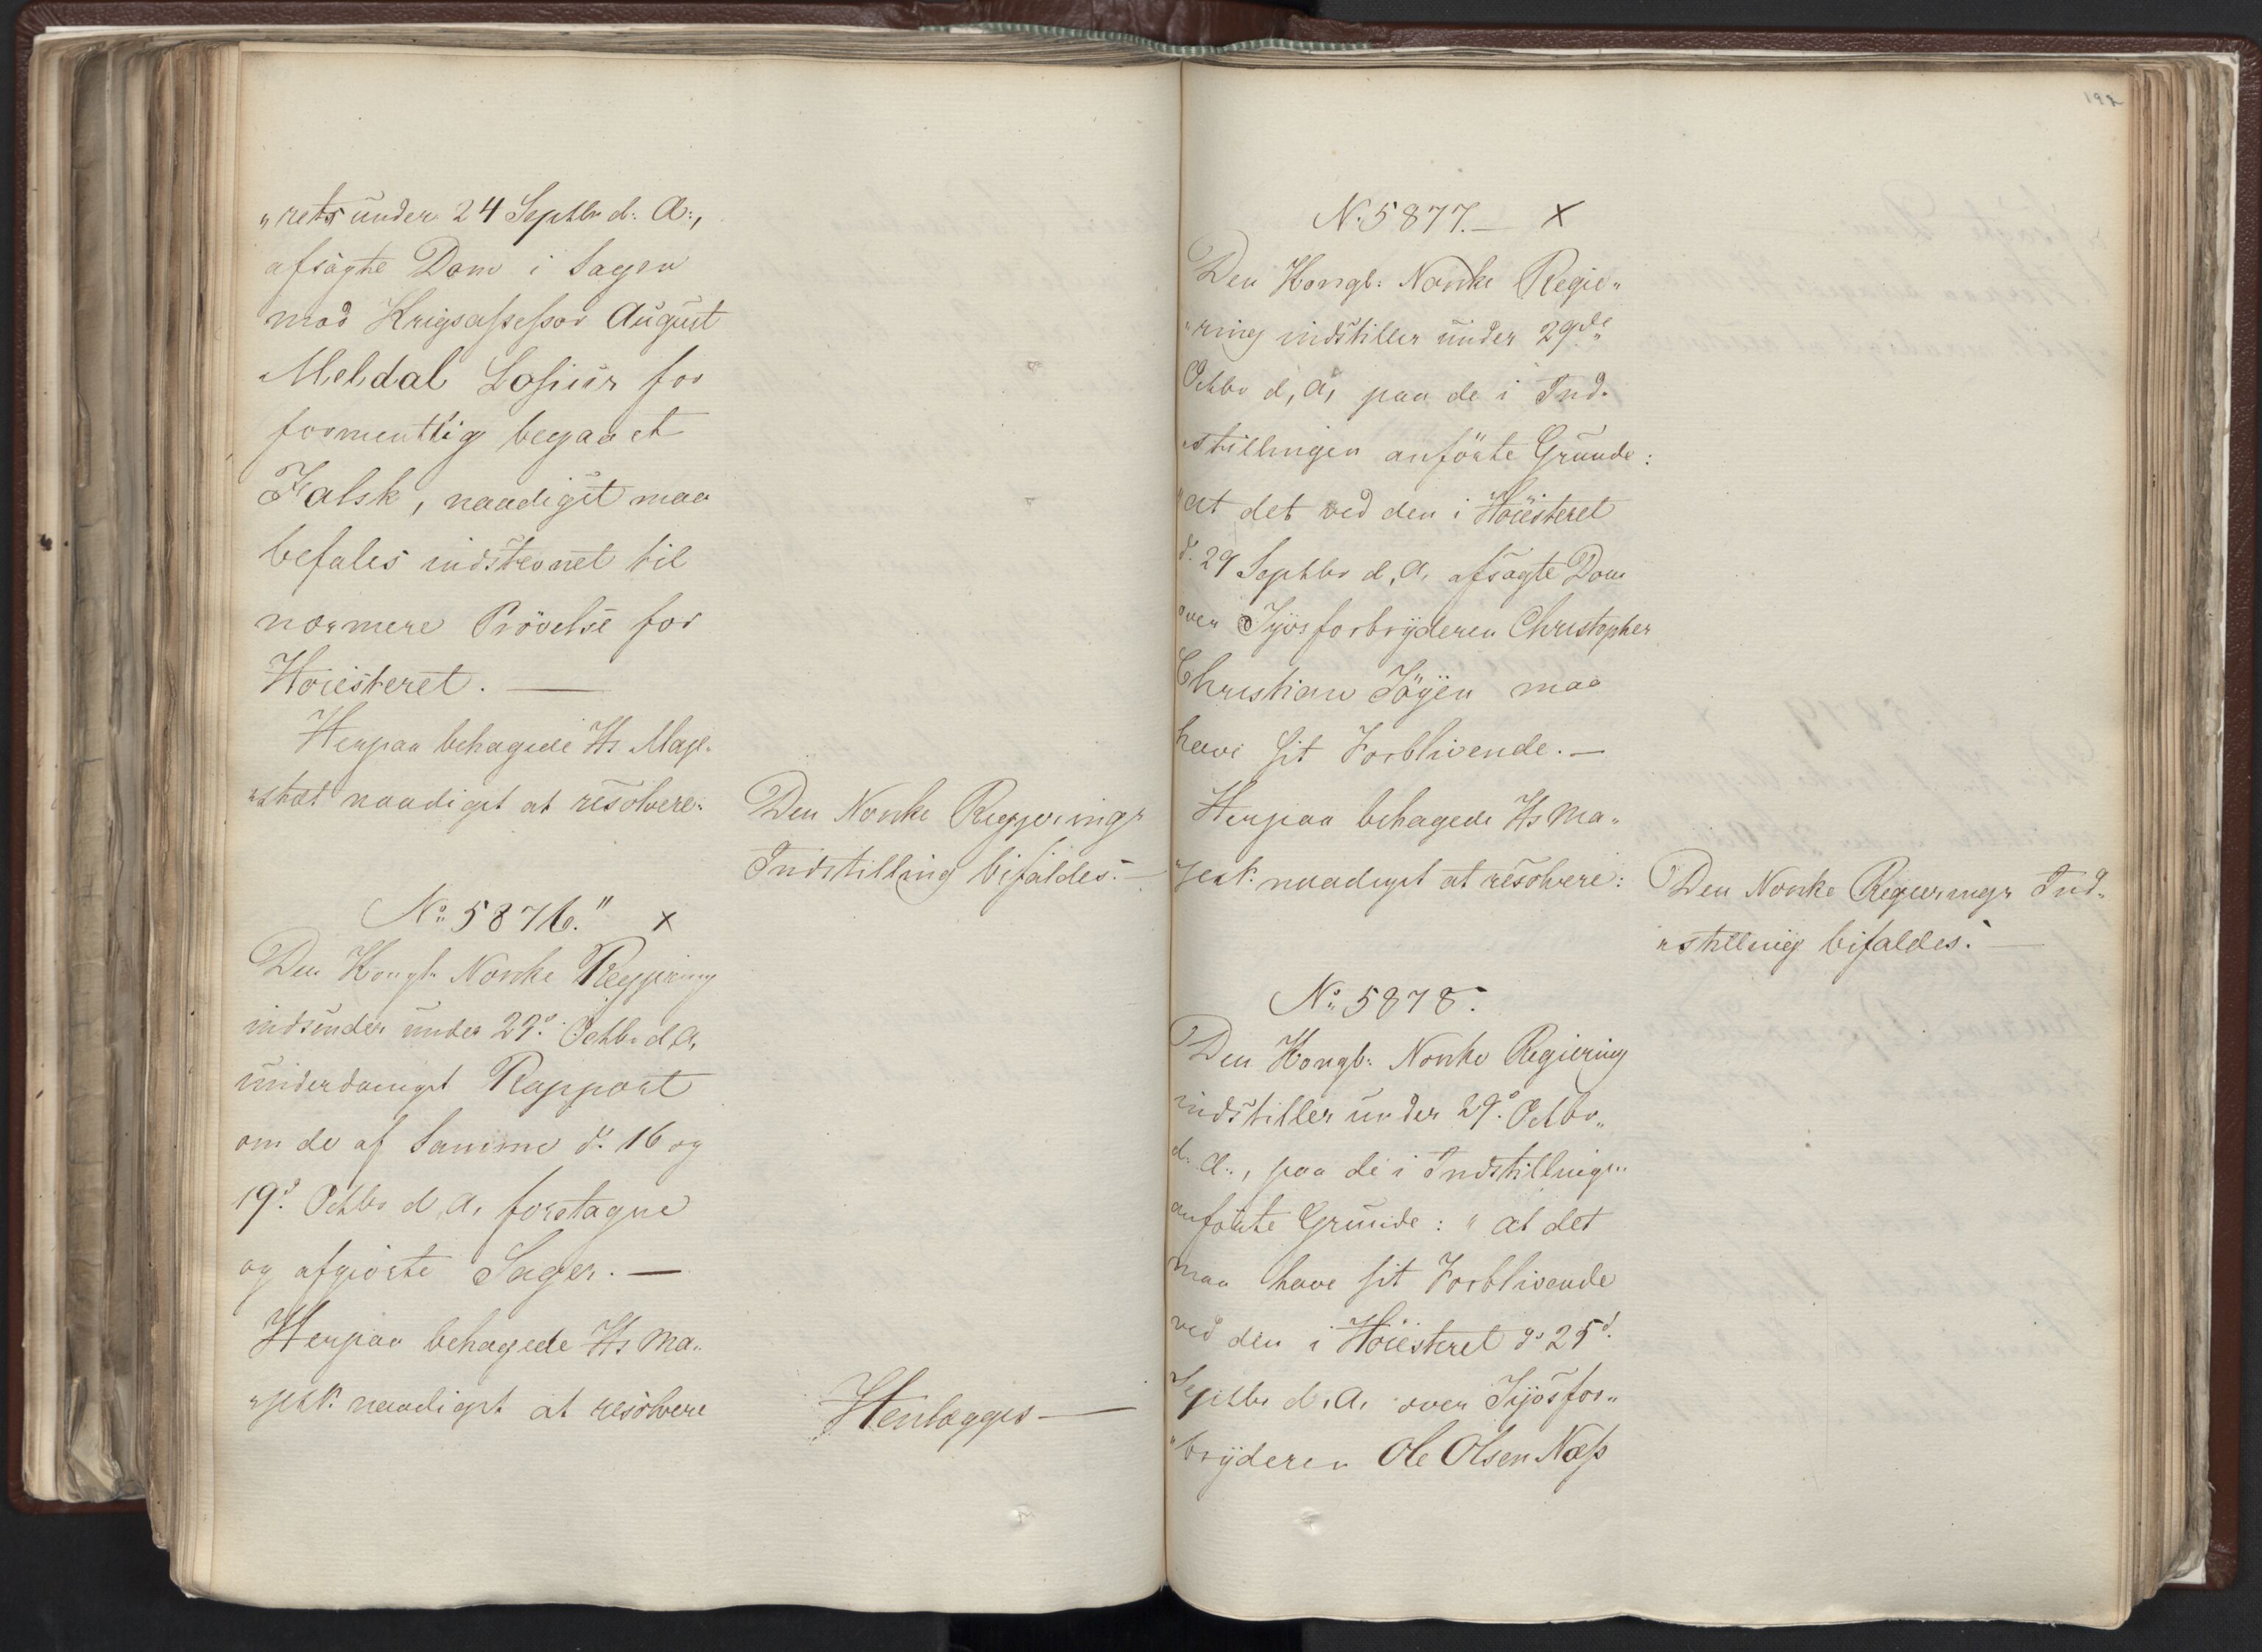 „rets under 24 Septbr d: A:,
afsagte Dom i Sagen
mod Krigsassessor August
Meldal Lasius for
formentlig begaaet
Falsk, naadigst maa
befales indstevnet til
nærmere Prövelse for
Höiesteret. —
Herpaa behagede Hs Maje„
„stæt naadigst at resolvere:
Den Norske Regjerings
Indstilling bifaldes. —
No 5876." x
Den Kongl. Norske Regjering
indsender under 29d. Octbr d. A,
underdanigst Rapport
om de af Samme d. 16 og
19d. Octbr d. A, foretagne
og afgiorte Sager. —
Herpaa behagede Hs Ma„
„jest. naadigst at resolvere
Henlægges —
192
N. 5877. — x
Den Kongl: Norske Regie„
„ring indstiller under 29de
Octbr d, A, paa de i Ind„
„stillingen anförte Grunde:
"at det ved den i Höiesteret
d. 29 Septbr d. A. afsagte Dom
over Tyvsforbryderen Christopher
Christian Töyen maa
have sit Forblivende. —
Herpaa behagede Hs Ma„
jest. naadigst at resolvere:
Den Norske Regierings Ind„
„stilling bifaldes. —
No 5878.
Den Kongl: Norske Regiering
indstiller under 29d. Octbr„
d. A., paa de i Indstillingen
anförte Grunde: " at det
maa have sit Forblivende
ved den i Höiesteret d. 25d.
Septbr d. A. over Tyvsfor„
„bryderen Ole Olsen Næss